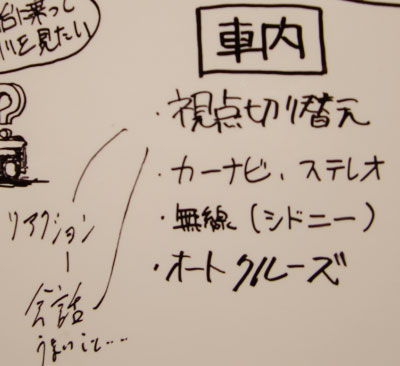 乗って
を見たい
車内
・視点切り替え
・カーナビ、ステレオ
・無線(シドニー)
・オートクルーズ
リアクション
会話
うまいこと…